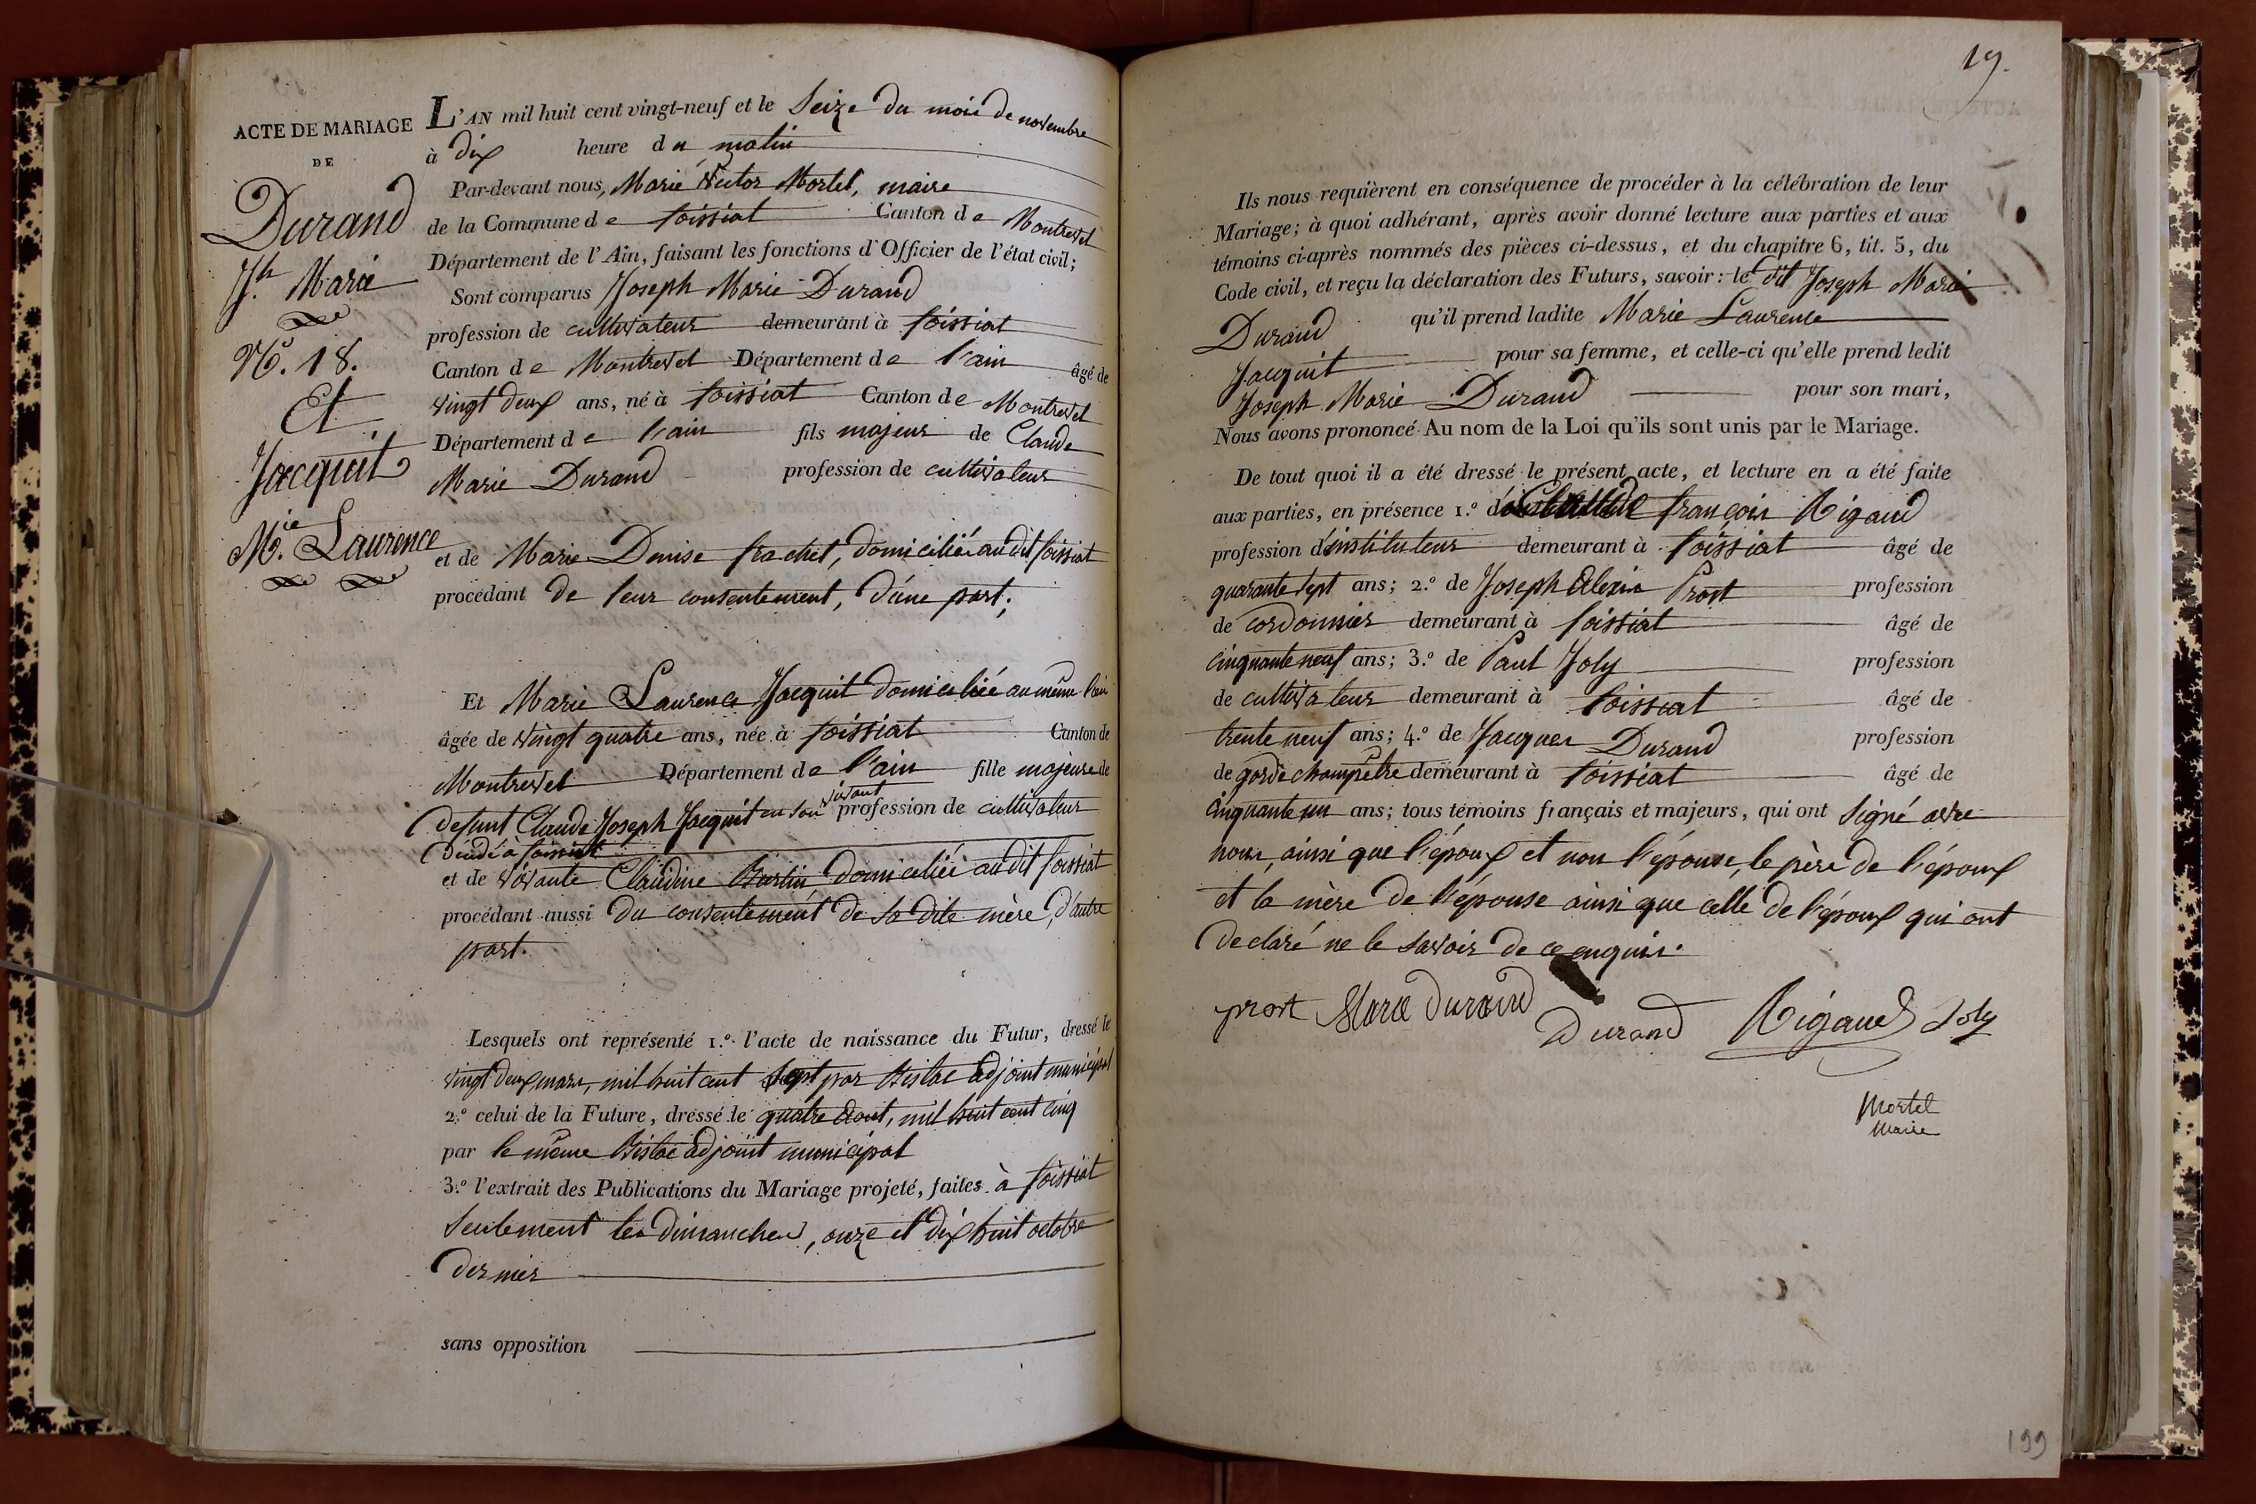 ACTE DE MARIAGE
DE
Durand
Jh. Marie
N.o 18.
Et
Jacquit
M.ie Laurence
L'AN mil huit cent vingt-neuf et le Seize du mois de novembre
à dix heure du matin
Par-devant nous, Marie Victor Mortel, maire
de la Commune de foissiat Canton de Montrevel
Département de l'Ain, faisant les fonctions d'Officier de l'état civil;
Sont comparus Joseph Marie Durand
profession de cultivateur demeurant à foissiat
Canton de Montrevel Département de l'ain âgé de
vingt deux ans, né à foissiat Canton de Montrevel
Département de l'ain fils majeur de Claude
Marie Durand profession de cultivateur
et de Marie Denise frachet, domiciliés au dit foissiat
procédant de leur consentement, d'une part;
Et Marie Laurence Jacquit domiciliée au même lieu
âgée de vingt quatre ans, née à foissiat Canton de
Montrevel Département de l'ain fille majeure de
defunt Claude Joseph Jacquit en son vivant profession de cultivateur
décédé à foissiat
et de vivante Claudine domiciliée au dit foissiat
procédant aussi du consentement de sa dite mère, d'autre
part.
Lesquels ont représenté 1.o l'acte de naissance du Futur, dressé le
vingt deux mars, mil huit cent sept par adjoint municipal
2.o celui de la Future, dressé le quatre aout, mil huit cent cinq
par le même adjoint municipal
3.o l'extrait des Publications du Mariage projeté, faites à foissiat
Seulement les dimanches, onze et dix huit octobre
dernier
sans opposition
19.
Ils nous requièrent en conséquence de procéder à la célébration de leur
Mariage; à quoi adhérant, après avoir donné lecture aux parties et aux
témoins ci-après nommés des pièces ci-dessus, et du chapitre 6, tit. 5, du
Code civil, et reçu la déclaration des Futurs, savoir: le dit Joseph Marie
Durand qu'il prend ladite Marie Laurence
Jacquit pour sa femme, et celle-ci qu'elle prend ledit
Joseph Marie Durand pour son mari,
Nous avons prononcé Au nom de la Loi qu'ils sont unis par le Mariage.
De tout quoi il a été dressé le présent acte, et lecture en a été faite
aux parties, en présence 1.o de Claude françois Rigaud
profession d'instituteur demeurant à foissiat âgé de
quarante sept ans; 2.o de Joseph Alexis Prost profession
de cordonnier demeurant à foissiat âgé de
cinquante neuf ans; 3.o de Paul Joly profession
de cultivateur demeurant à foissiat âgé de
trente neuf ans; 4.o de Jacques Durand profession
de garde champêtre demeurant à foissiat âgé de
cinquante un ans; tous témoins français et majeurs, qui ont Signé avec
nous, ainsi que l'époux et non l'épouse, le père de l'époux
et la mère de l'épouse ainsi que celle de l'époux qui ont
declaré ne le savoir de ce enquis.
prost Marie Durand Durand Rigaud Joly
Mortel
Maire
199